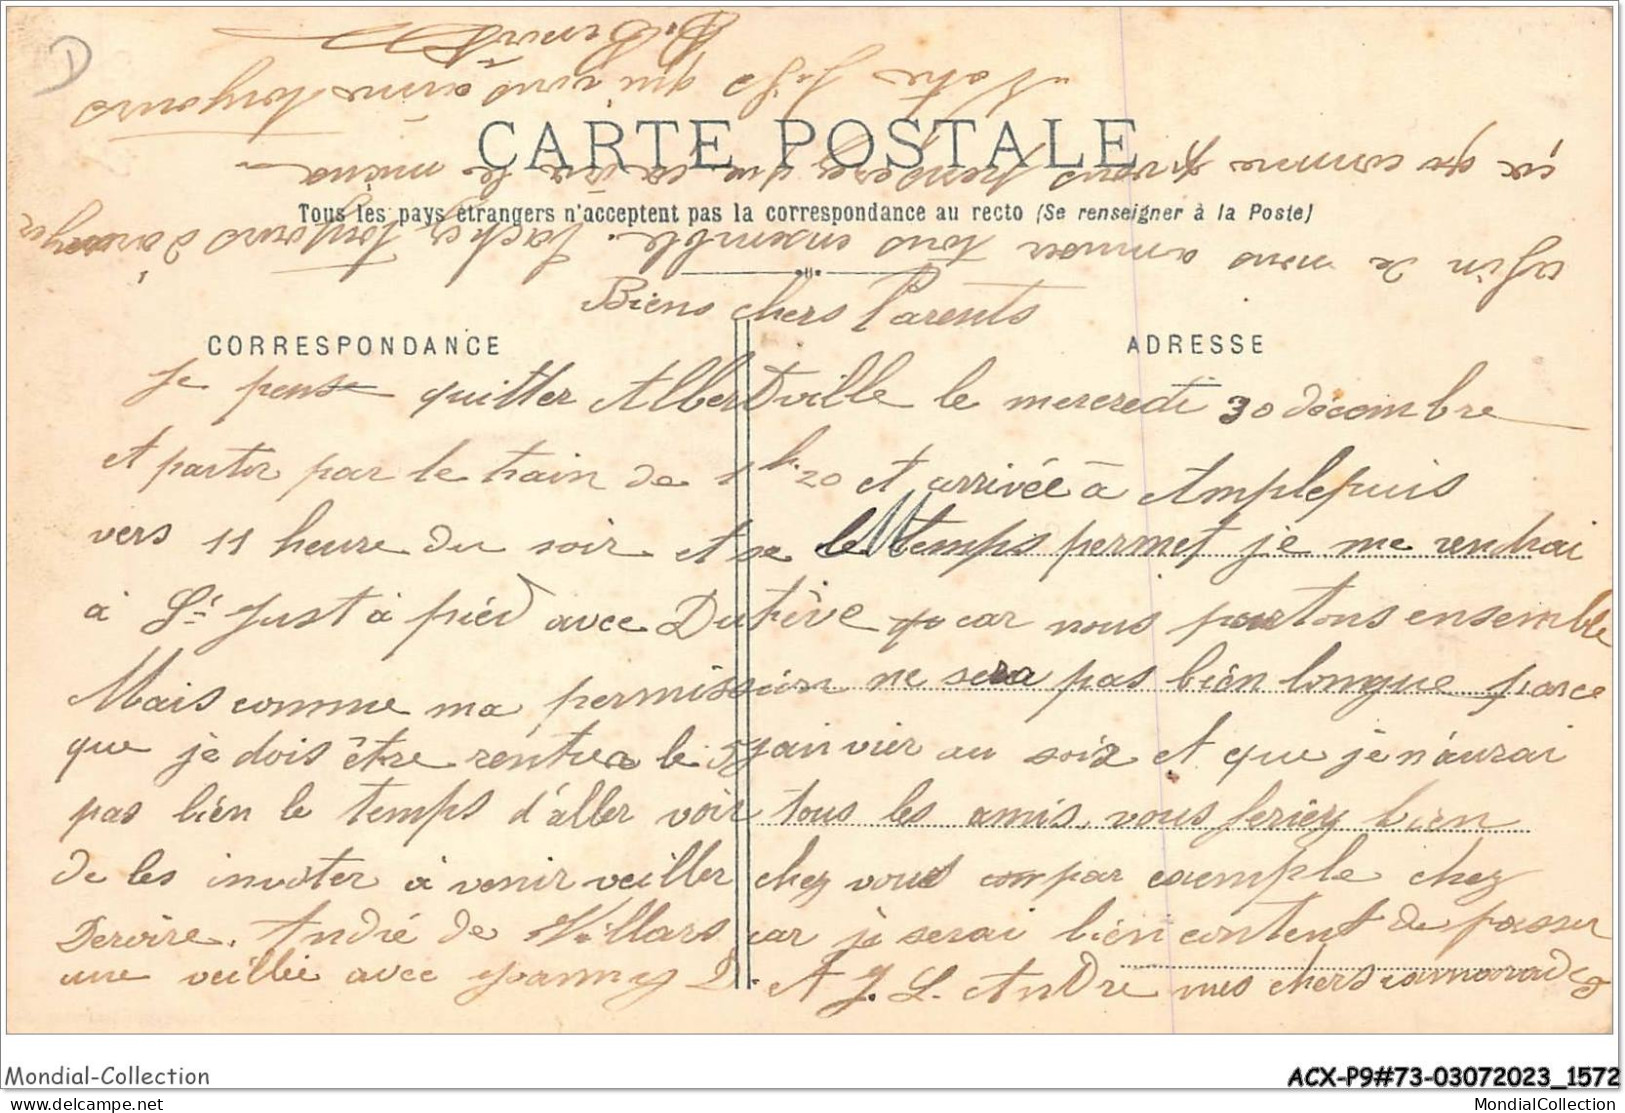 D
CARTE POSTALE
Tous les pays étrangers n'acceptent pas la correspondance au recto (Se renseigner à la Poste)
CORRESPONDANCE
ADRESSE
Biens chers Parents
Je pense quitter Albertville le mercredi 30 décembre
et partir par le train de 1h.20 et arrivée à Amplepuis
vers 11 heure du soir et se le temps permet je me rendrai
à St Just à pied avec Dutève car nous partons ensemble
Mais comme ma permission ne sera pas bien longue parce
que je dois être rentrée le 5 janvier au soir et que je n'aurai
pas bien le temps d'aller voir tous les amis, vous feriez bien
de les inviter à venir veiller chez vous par exemple chez
Deroire. André de Villars car je serai bien content de passer
une veillée avec Joanny D. A J. L. André mes chers camarades
afin de nous amuser tous ensemble. tachez toujours d'arranger
ça comme vous penserez que ca ira le mieux
Votre fils qui vous aime toujours
Mondial-Collection
ACX-P9#73-03072023_1572
delcampe.net
MondialCollection